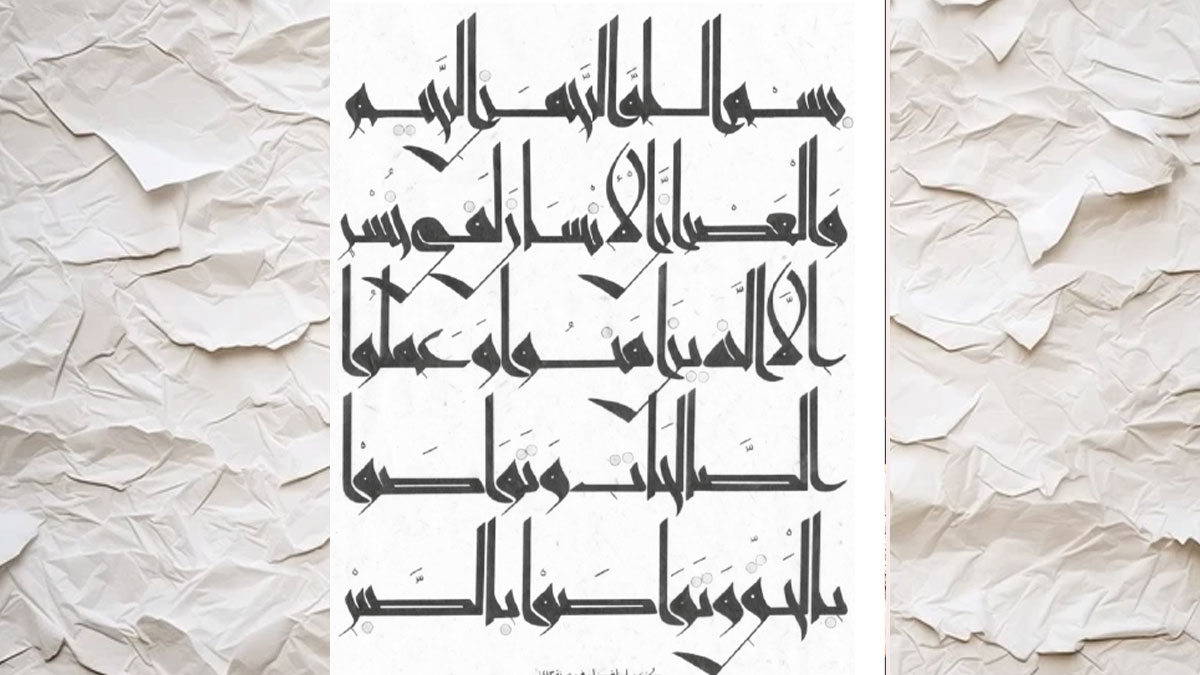 بِسْمِ اللَّهِ الرَّحْمَنِ الرَّحِيمِ
وَالْعَصْرِ إِنَّ الْإِنْسَانَ لَفِي خُسْرٍ
إِلَّا الَّذِينَ آمَنُوا وَعَمِلُوا
الصَّالِحَاتِ وَتَوَاصَوْا
بِالْحَقِّ وَتَوَاصَوْا بِالصَّبْرِ